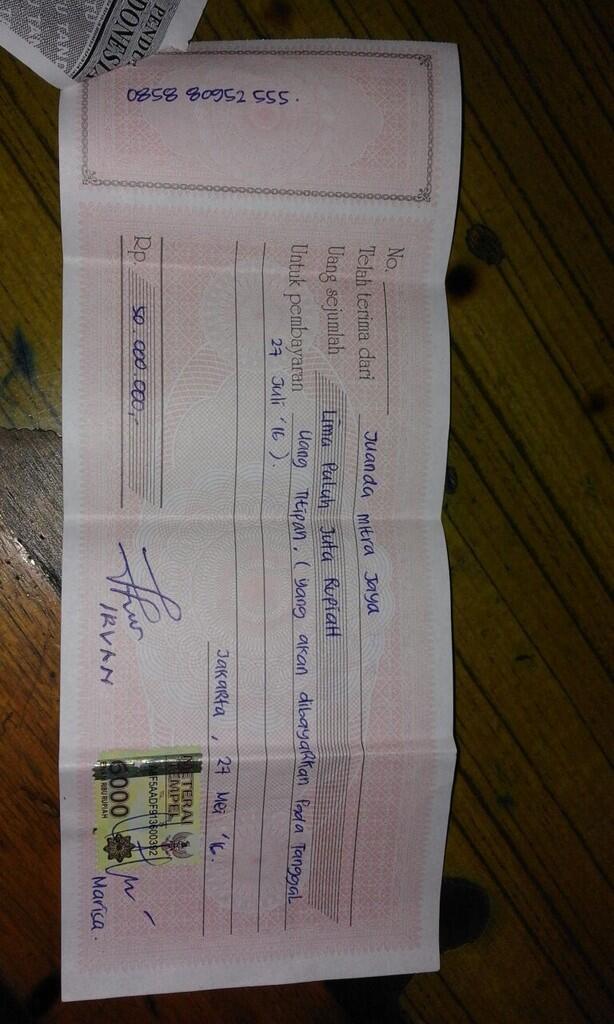 PEND
DONESIA
0858 80952 555.
No.
Telah terima dari Juanda Mitra Jaya
Uang sejumlah Lima Puluh Juta Rupiah
Untuk pembayaran Uang Titipan. (yang akan dibayarkan Pada Tanggal
27 Juli '16).
Jakarta, 27 Mei '16.
Rp. 50.000.000,-
IRVAN
METERAI
TEMPEL
6000
RIBU RUPIAH
Marica.